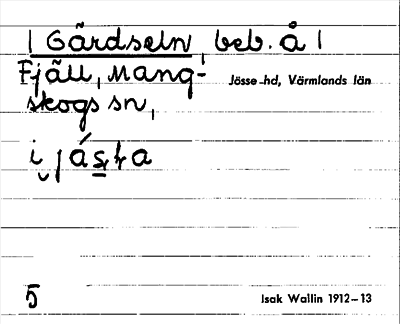 | Gärdseln, beb. å |
Fjäll, Mang-
Jösse hd, Värmlands län
skogs sn,
5
Isak Wallin 1912–13